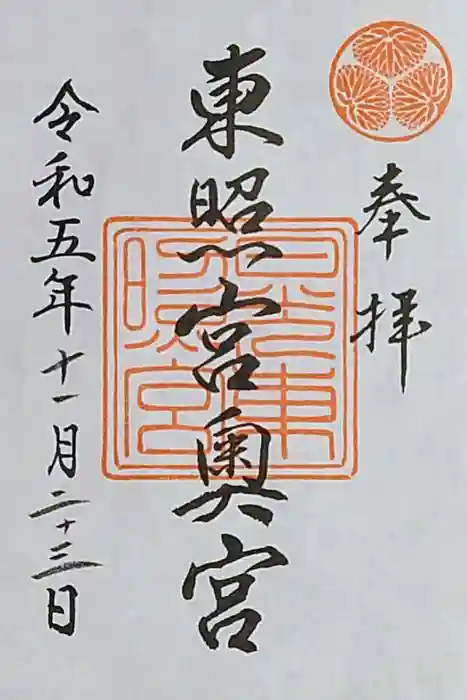 奉拝
東照宮奥宮
令和五年十一月二十三日